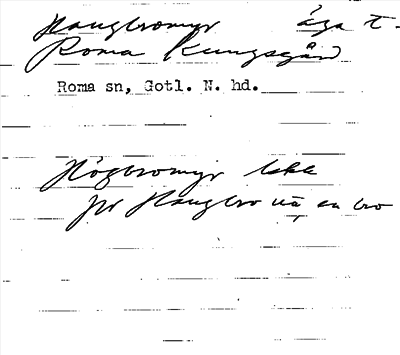 Haugbromyr äga t.
Roma Kungsgård
Roma sn, Gotl. N. hd.
Högbromyr
på Haugbro via en bro